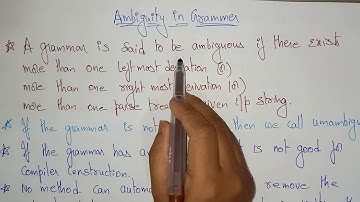 Ambiguity in Grammer
* A grammar is said to be ambiguous if there exists
more than one left most derivation (or)
more than one right most derivation (or)
more than one parse tree given i/p string.
* If the grammar is not then we call unambiguous
* If the grammar has a is not good for
compiler construction.
* No method can automa remove the